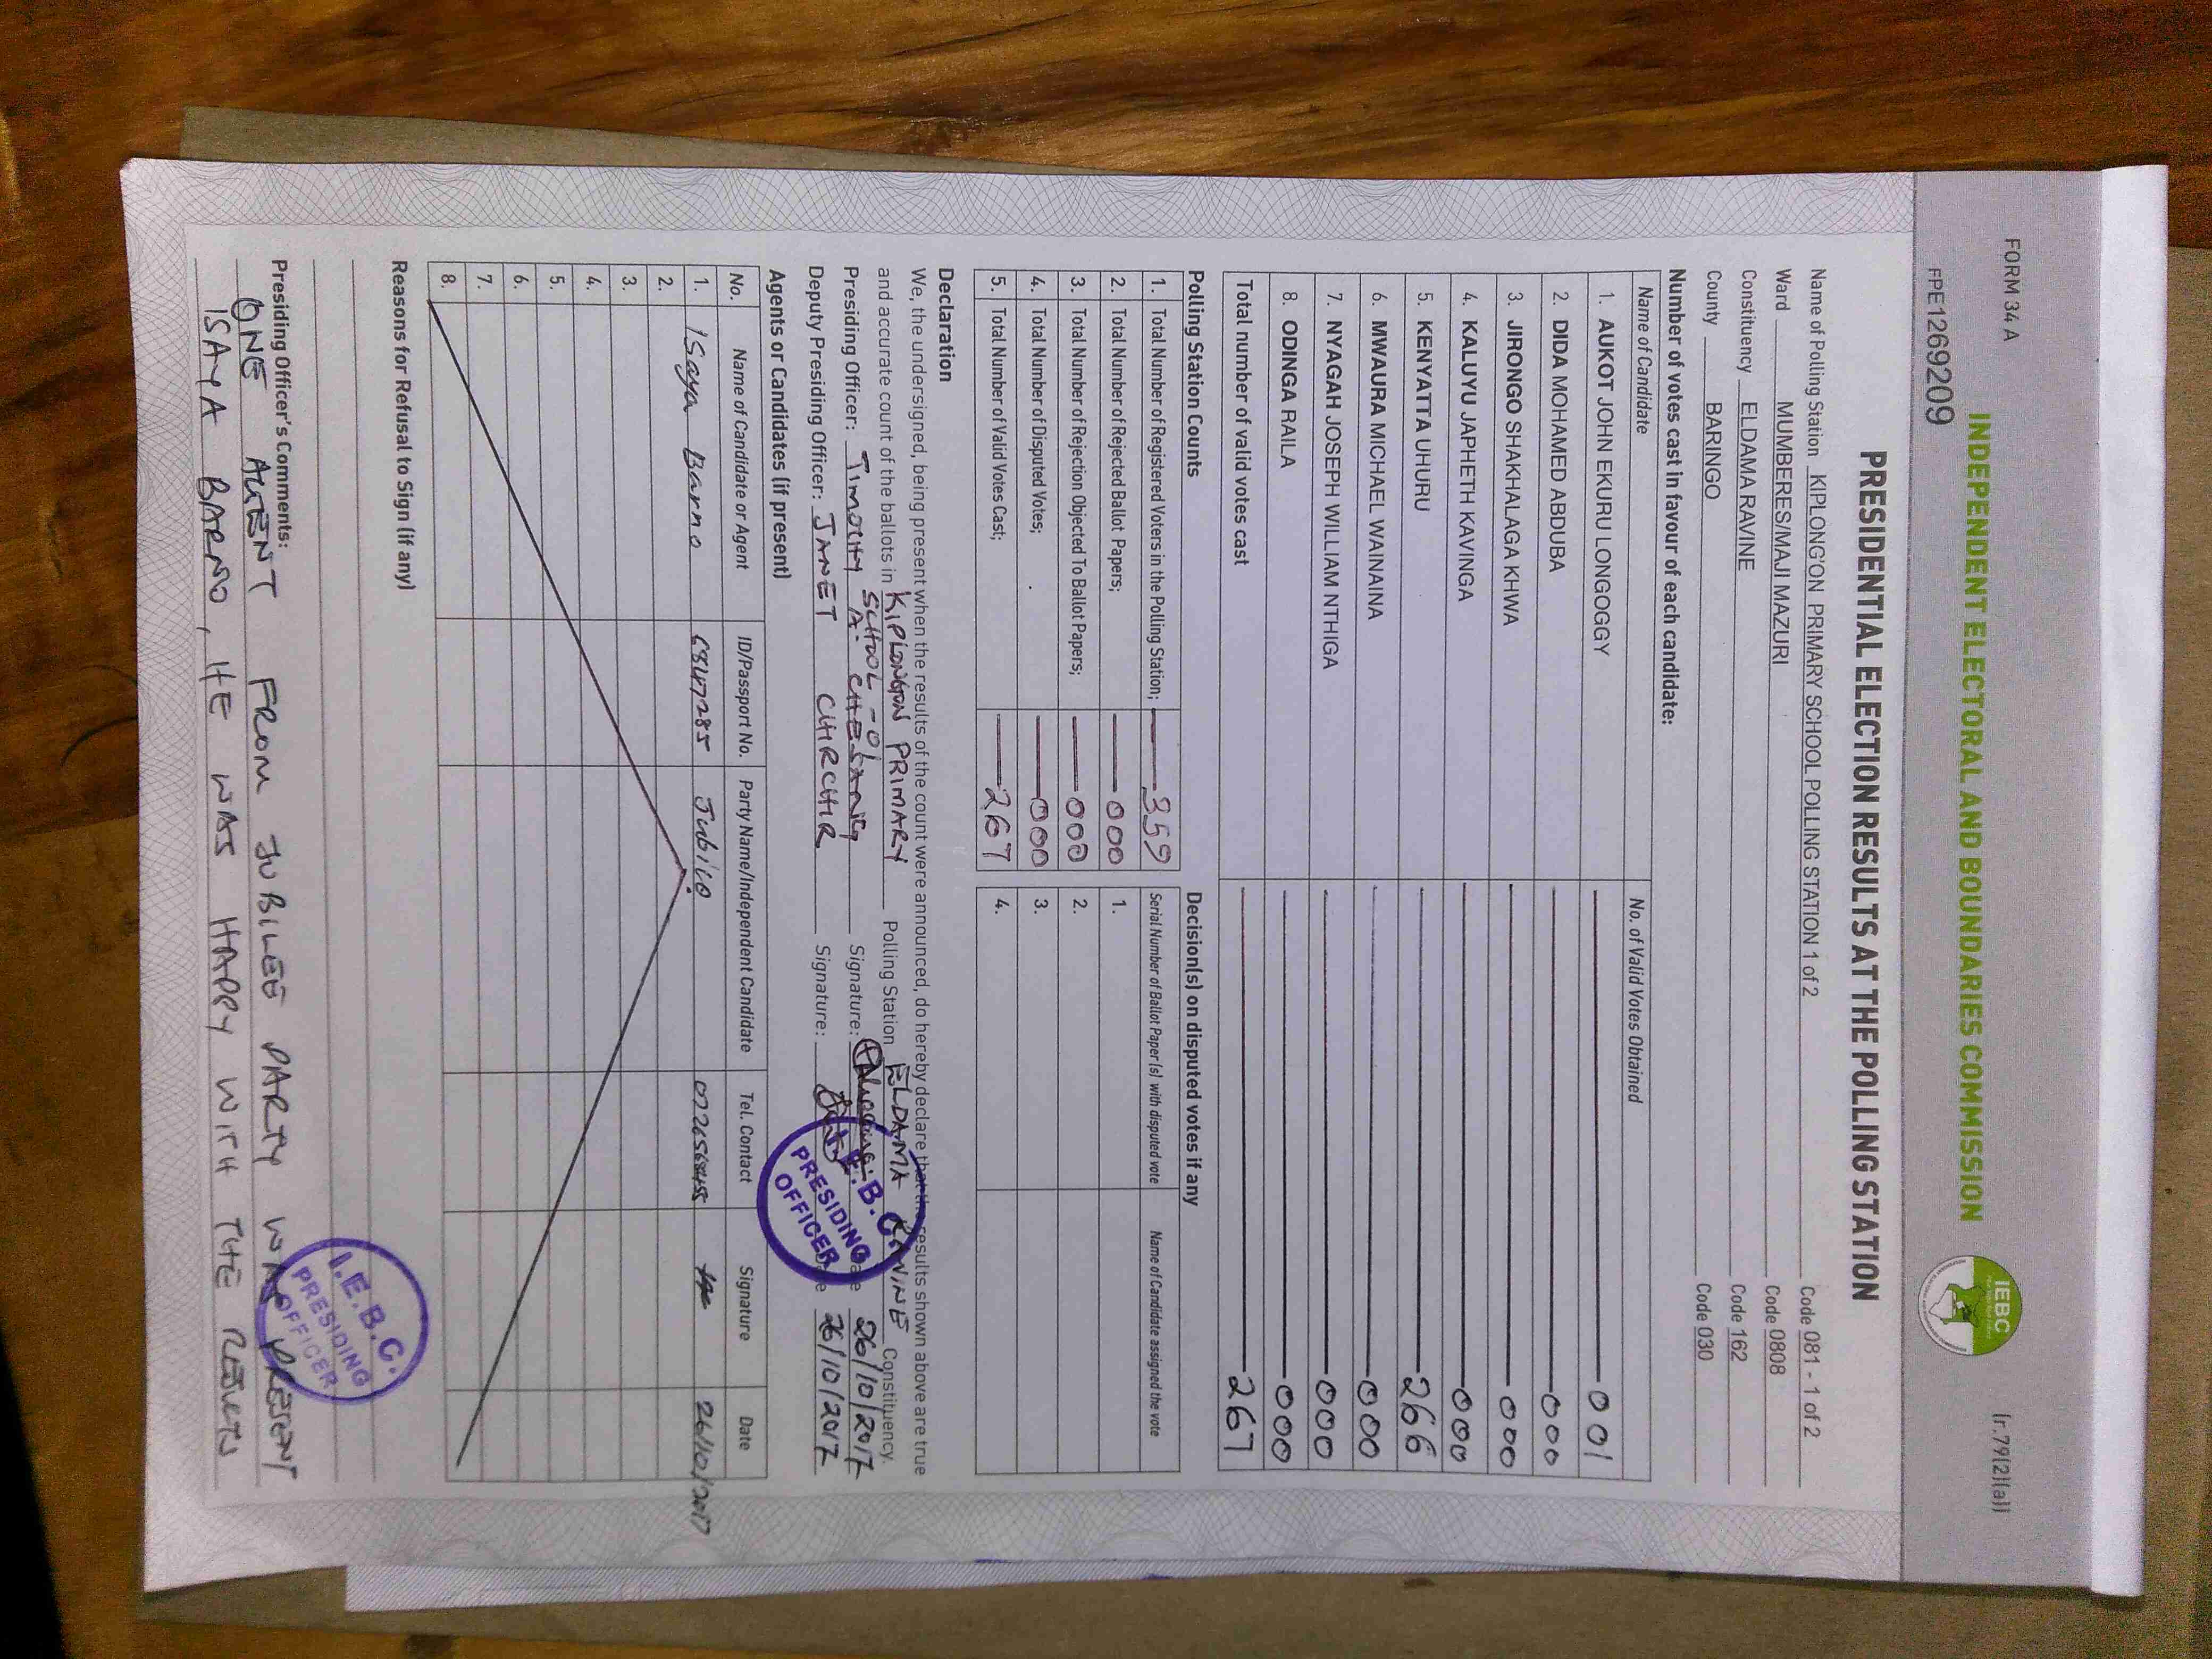 FORM 34 A
(r.79(2)(a))
INDEPENDENT ELECTORAL AND BOUNDARIES COMMISSION
IEBC
FPE1269209
PRESIDENTIAL ELECTION RESULTS AT THE POLLING STATION
Name of Polling Station KIPLONG'ON PRIMARY SCHOOL POLLING STATION 1 of 2 Code 081 - 1 of 2
Ward MUMBERES/MAJI MAZURI Code 0808
Constituency ELDAMA RAVINE Code 162
County BARINGO Code 030
Number of votes cast in favour of each candidate:
Name of Candidate No. of Valid Votes Obtained
1. AUKOT JOHN EKURU LONGOGGY 001
2. DIDA MOHAMED ABDUBA 000
3. JIRONGO SHAKHALAGA KHWA 000
4. KALUYU JAPHETH KAVINGA 000
5. KENYATTA UHURU 266
6. MWAURA MICHAEL WAINAINA 000
7. NYAGAH JOSEPH WILLIAM NTHIGA 000
8. ODINGA RAILA 000
Total number of valid votes cast 267
Polling Station Counts
1. Total Number of Registered Voters in the Polling Station; 359
2. Total Number of Rejected Ballot Papers; 000
3. Total Number of Rejection Objected To Ballot Papers; 000
4. Total Number of Disputed Votes; 000
5. Total Number of Valid Votes Cast; 267
Decision(s) on disputed votes if any
Serial Number of Ballot Paper(s) with disputed vote Name of Candidate assigned the vote
1.
2.
3.
4.
Declaration
We, the undersigned, being present when the results of the count were announced, do hereby declare that the results shown above are true
and accurate count of the ballots in KIPLONGON PRIMARY SCHOOL - 01 Polling Station ELDAMA RAVINE Constituency.
Presiding Officer: TIMOTHY A. Signature: Date 26/10/2017
Deputy Presiding Officer: JANET Signature: Date 26/10/2017
I.E.B.C.
PRESIDING
OFFICER
Agents or Candidates (if present)
No. Name of Candidate or Agent ID/Passport No. Party Name/Independent Candidate Tel. Contact Signature Date
1. ISaya Barno Jubilee 26/10/2017
2.
3.
4.
5.
6.
7.
8.
Reasons for Refusal to Sign (if any)
I.E.B.C.
PRESIDING
OFFICER
Presiding Officer's Comments:
ONE AGENT FROM JUBILEE PARTY WAS PRESENT
ISAYA BARNO, HE WAS HAPPY WITH THE RESULTS